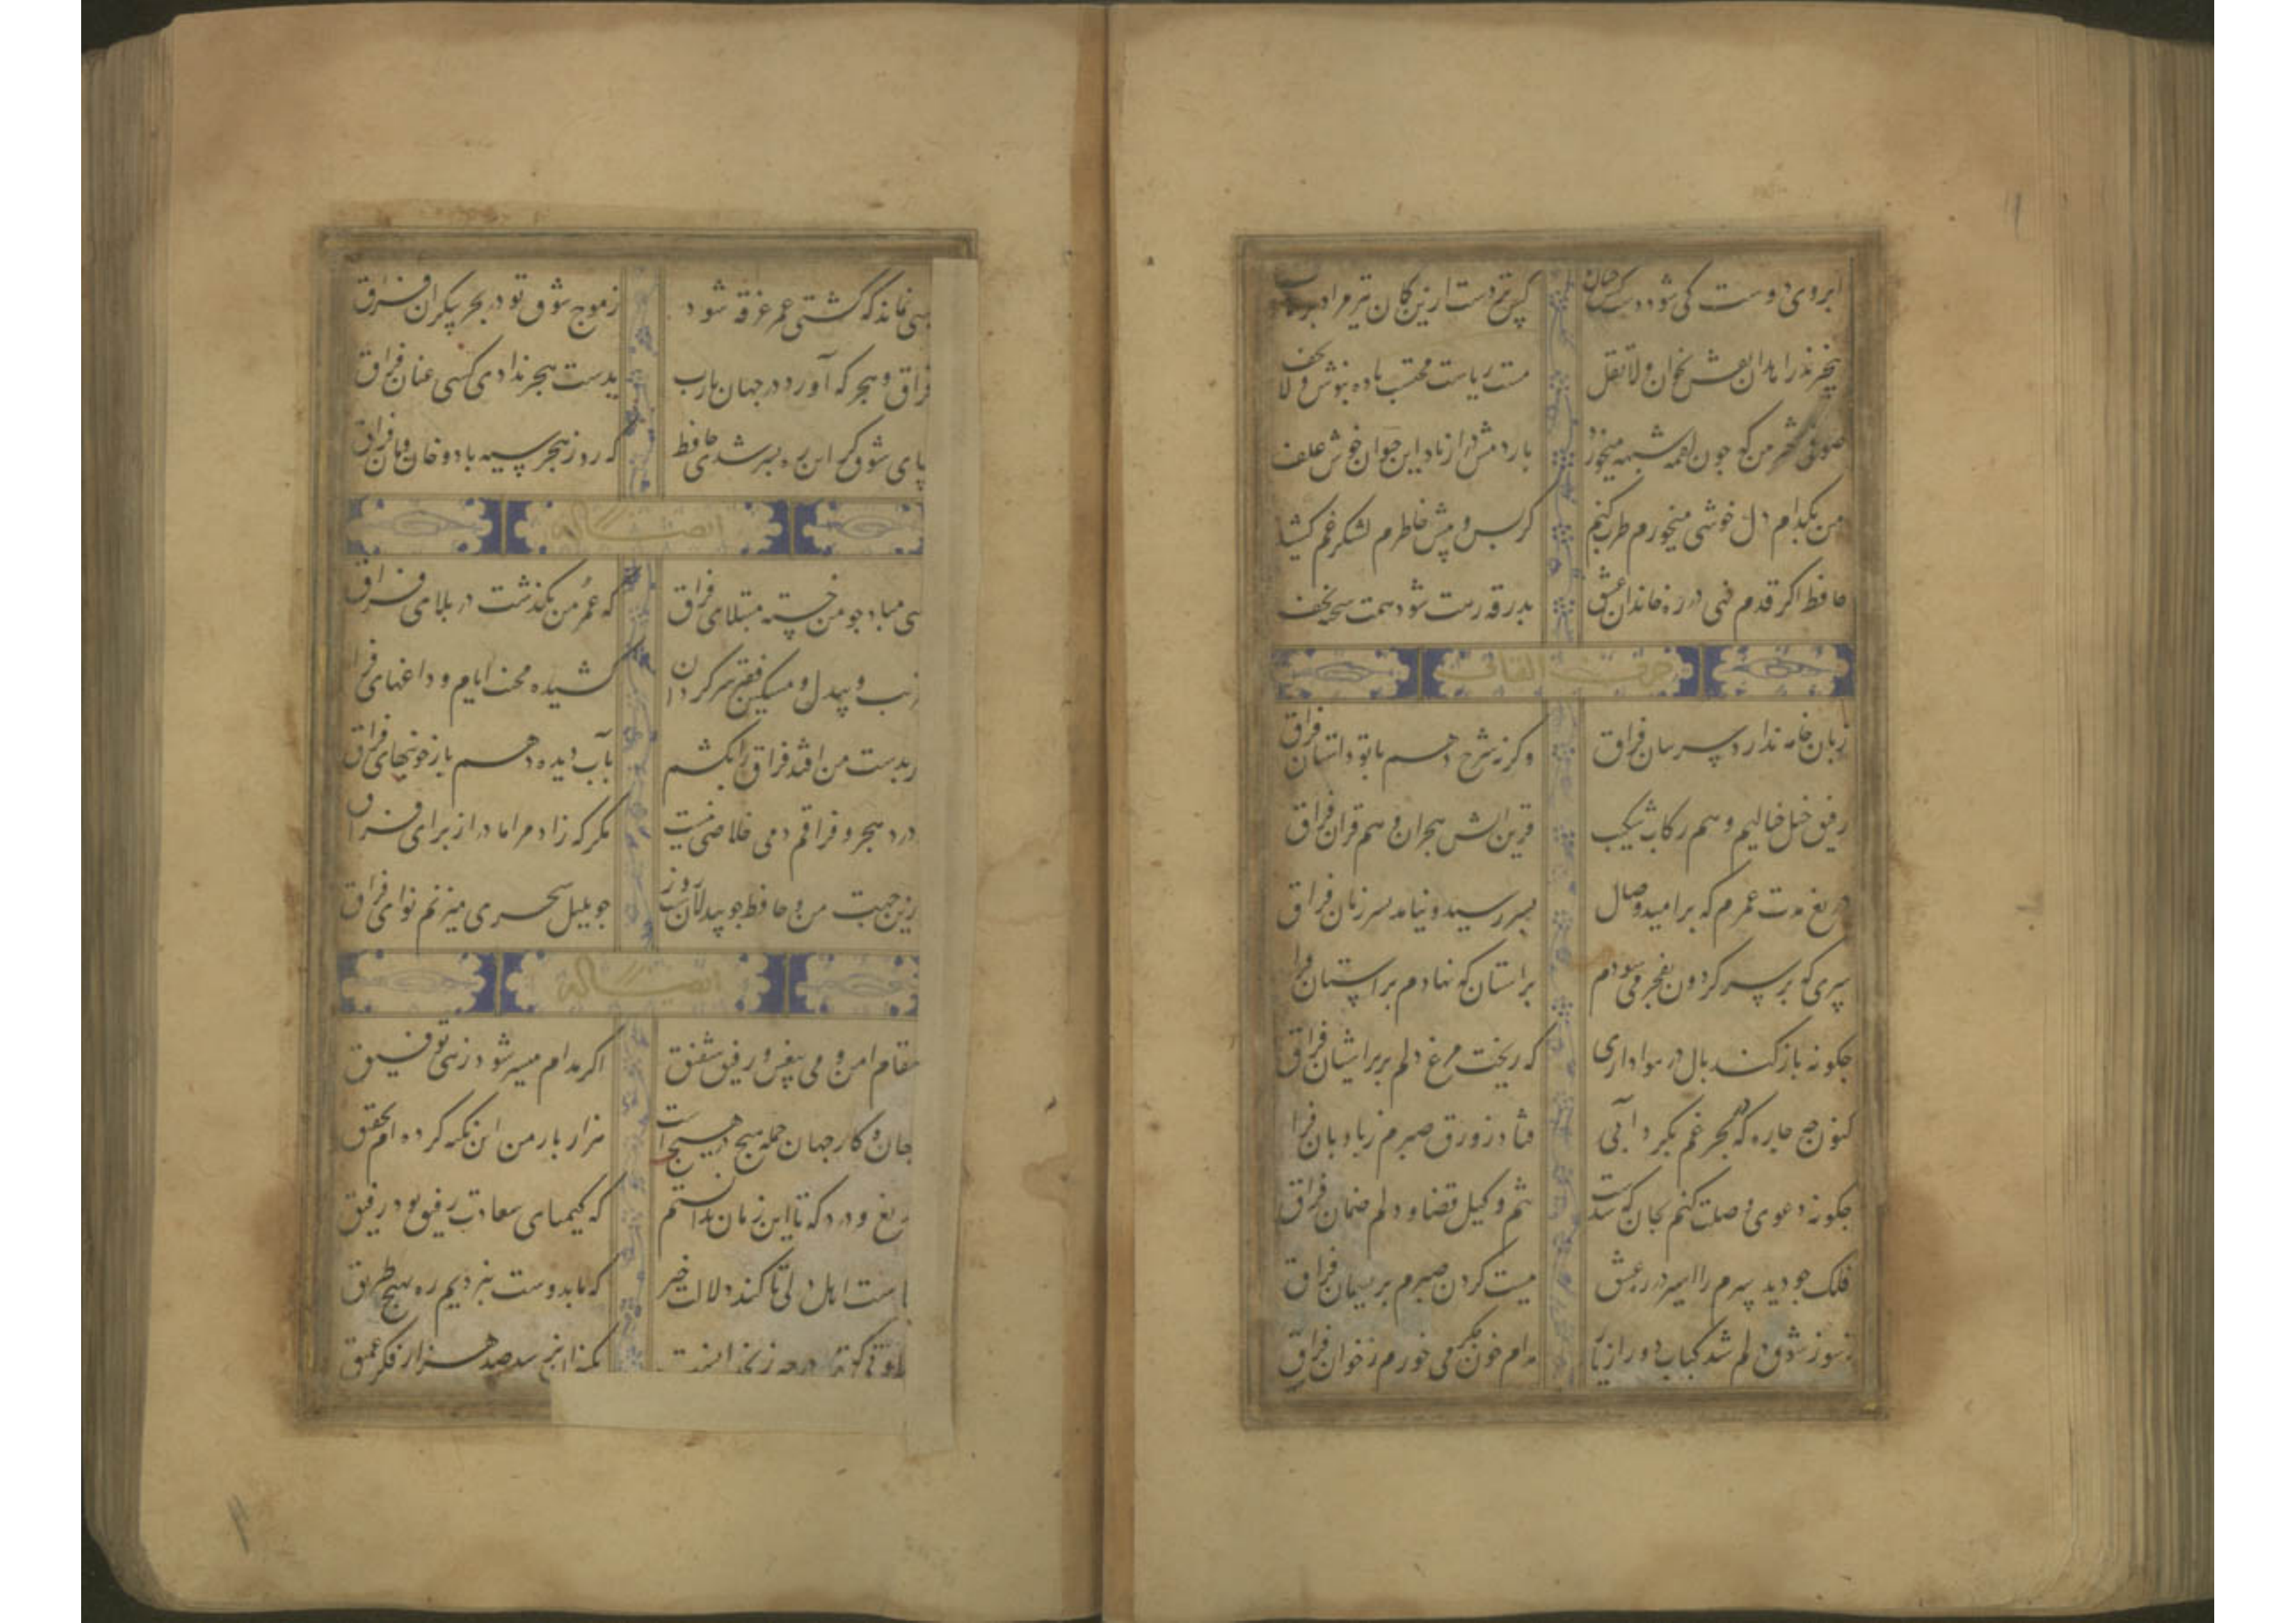 ابروی دوست کی شود دست کش خیال من کس نزدست ازین کمان تیر مراد بر هدف
بیخبرند زاهدان نقش بخوان ولا تقل مست ریاست محتسب باده بنوش ولا تخف
صوفی شهر من که جون لقمه شبهه میخورد باردمش دراز باد این حیوان خوش علف
من بکدام دل خوشی میخورم و طرب کنم کز پس و پیش خاطرم لشکر غم کشیده
حافظ اگر قدم زنی در ره خاندان عشق بدرقه رهت شود همت شحنه نجف
حرف القاف
زبان خامه ندارد سر بیان فراق وگرنه شرح دهم با تو داستان فراق
رفیق خیل خیالیم و هم رکاب شکیب قرین آتش هجران و هم قران فراق
دریغ مدت عمرم که بر امید وصال بسر رسید و نیامد بسر زمان فراق
سری که بر سر گردون بفخر می سودم براستان که نهادم بر آستان فراق
جکونه باز کند بال در هواداری که ریخت مرغ دلم پر بر آشیان فراق
کنون جه جاره که در بحر غم بگردابی فتاد زورق صبرم ز بادبان فراق
جکونه دعوی وصلت کنم بجان که شدست تنم وکیل قضا و دلم ضمان فراق
فلک جو دید سرم را اسیر در ره عشق ببست گردن صبرم بریسمان فراق
ز سوز شوق دلم شد کباب دور از یار مدام خون جگر می خورم ز خوان فراق
بسی نماند که کشتی عمر غرقه شود ز موج شوق تو در بحر بیکران فراق
فراق و هجر که آورد در جهان یارب بدست هجر ندادی کسی عنان فراق
بپای شوق گر این ره بسر شدی حافظ که روز هجر سیه باد و خان و مان فراق
ایضاً له
کسی مباد جو من خسته مبتلای فراق که عمر من بگذشت در بلای فراق
غریب و بیدل و مسکین فقیر سرگردان کشیده محنت ایام و داغهای فراق
گر بدست من افتد فراق را بکشم بآب دیده دهم باز خونبهای فراق
درد هجر و فراقم دمی خلاصی نیست مگر که زاد مرا مادر از برای فراق
ازین جهت من و حافظ جو بیدلان شب و روز جو بلبل سحری میزنم نوای فراق
ایضاً له
مقام امن و می بیغش و رفیق شفیق اگر مدام میسر شود زهی توفیق
جهان و کار جهان جمله هیچ در هیچ است هزار بار من این نکته کرده ام تحقیق
دریغ و درد که تا این زمان ندانستم که کیمیای سعادت رفیق بود رفیق
کجاست اهل دلی تا کند دلالت خیر که ما بدوست نبردیم ره بهیچ طریق
حلاوتی که ترا در چه زنخدانست بکنه آن نرسد صد هزار فکر عمیق